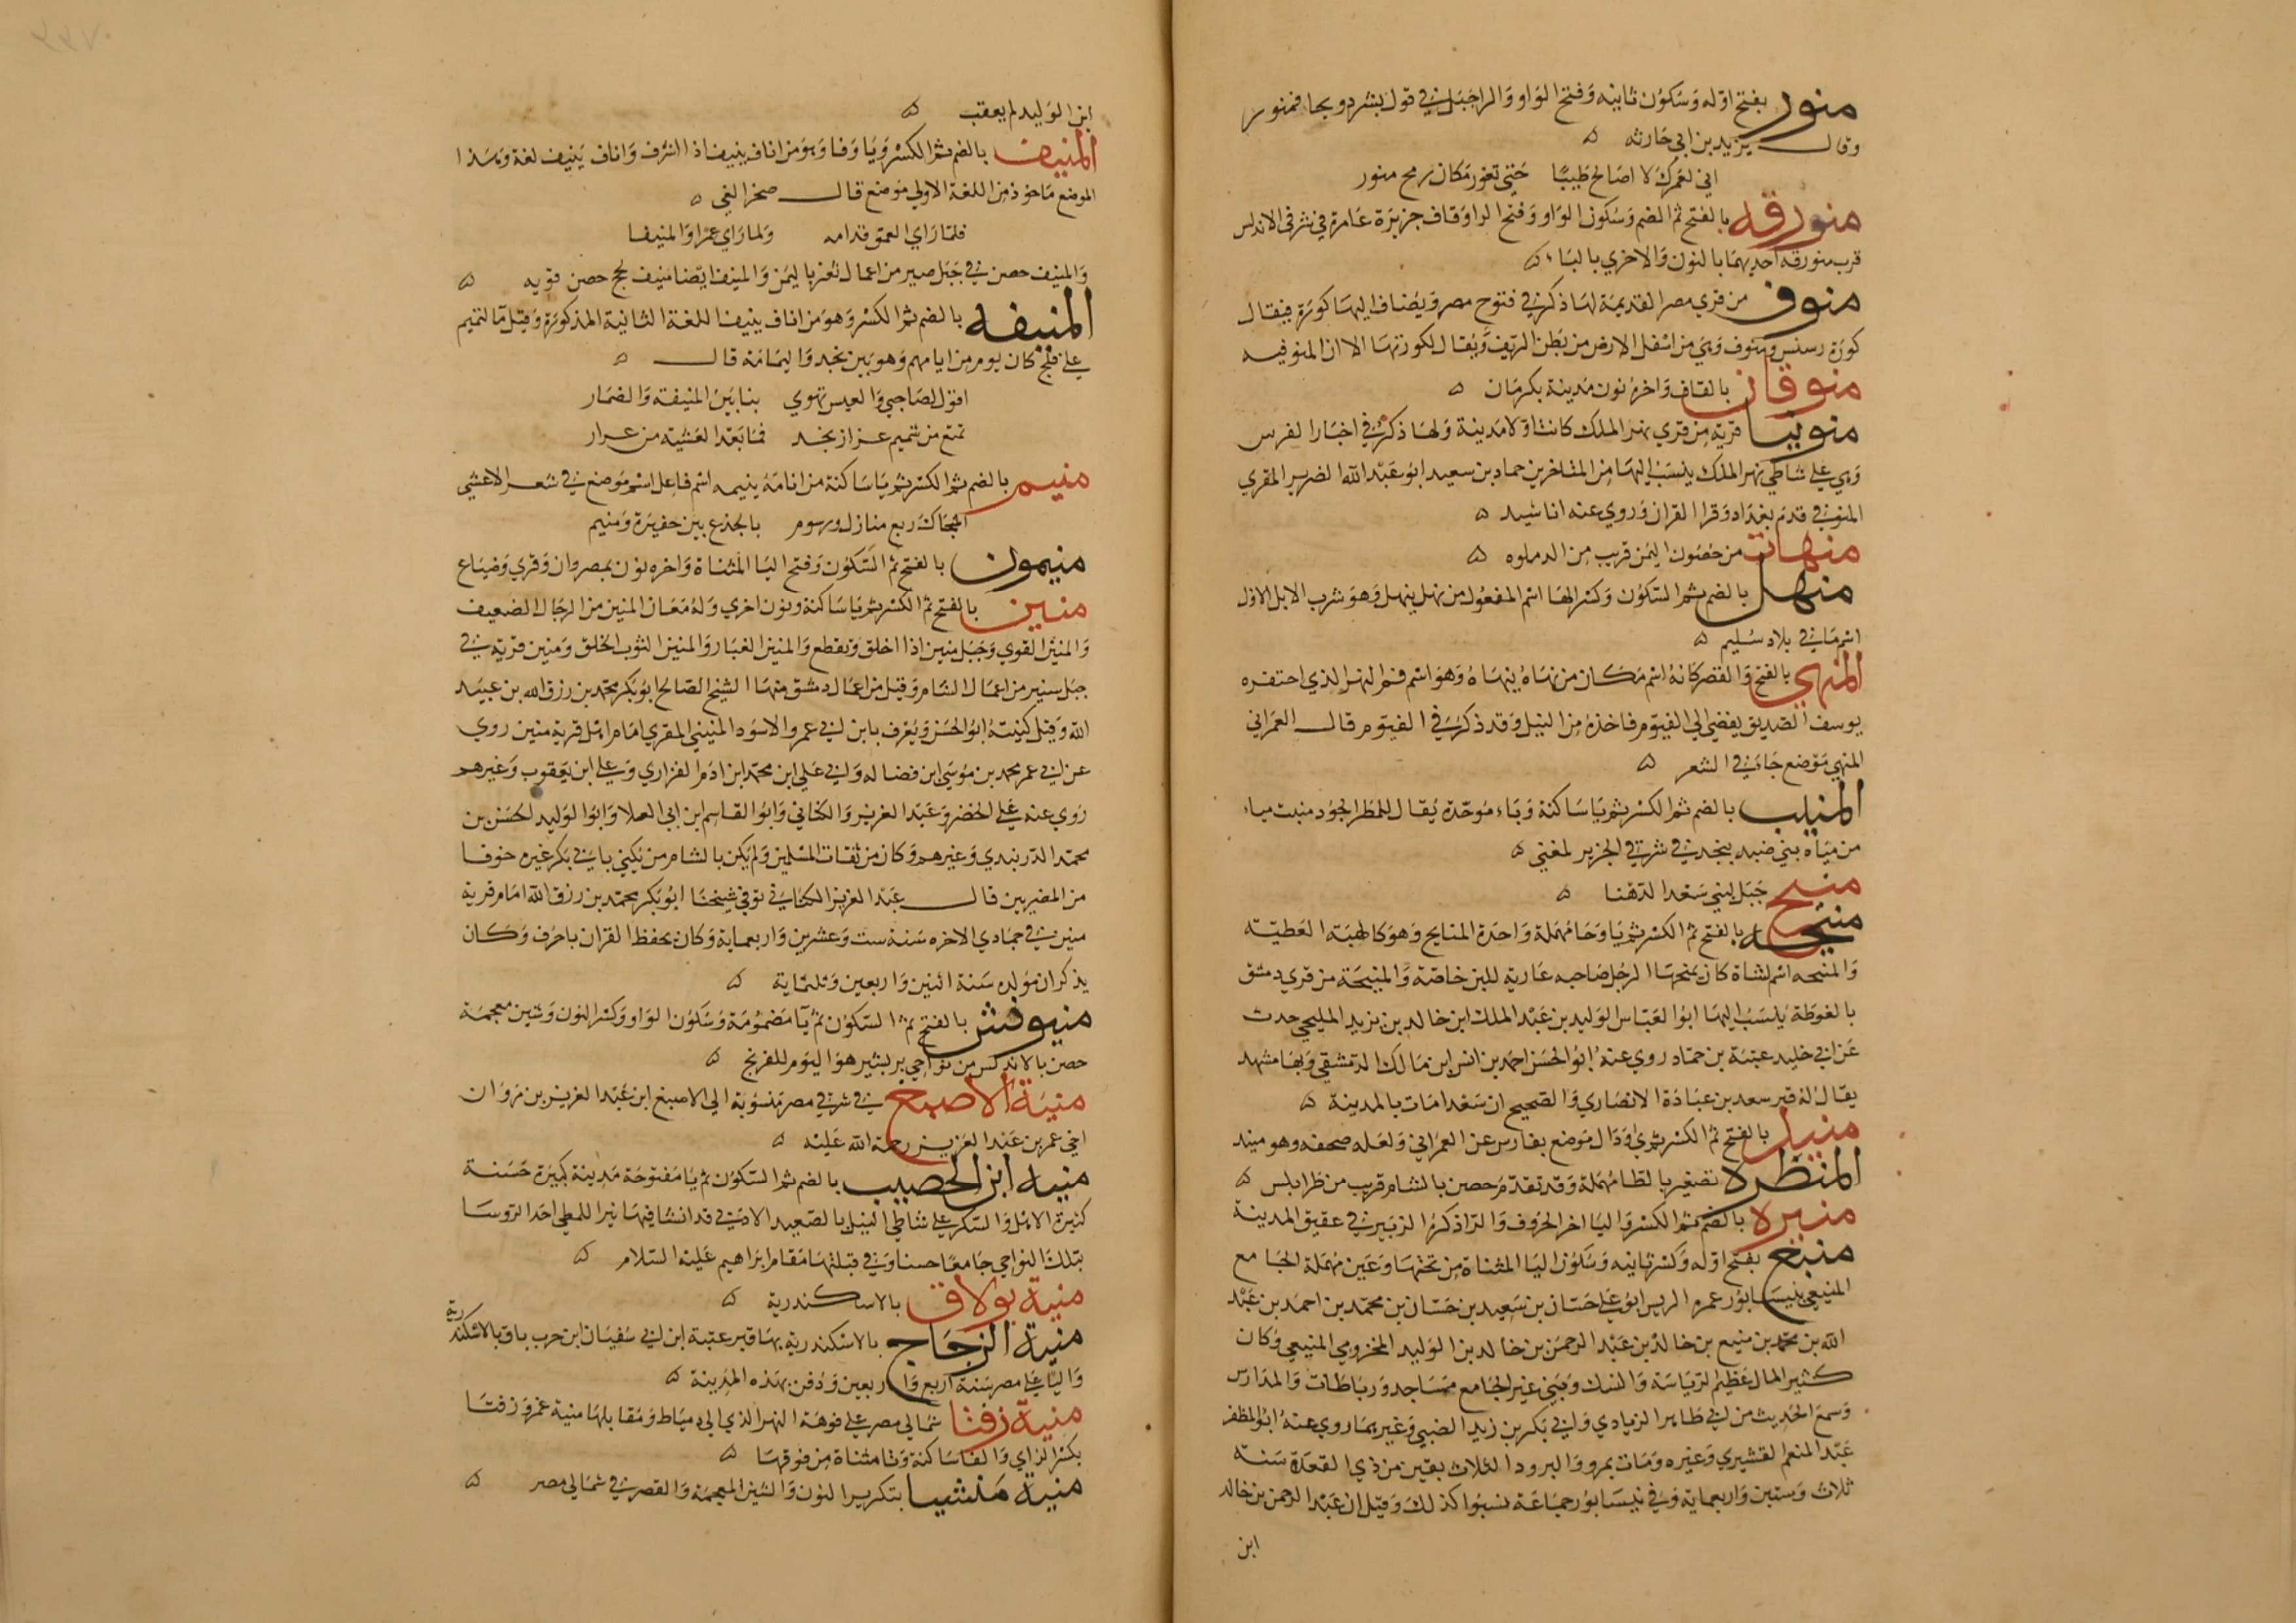 منور بفتح اوله وسكون ثانيه وفتح الواو والراجبل في قول بشر دو بحا فمنور
وقال يزيد بن ابي حارثه ه
اني لعمرك لا اصالح طيبًا حتى تغور مكان رمح منور
منورقه بالفتح ثم الضم وسكون الواو وفتح الرا وقاف جزيرة عامرة في شرقي الاندلس
قرب ميورقه احديهما بالنون والاخري بالياء ه
منوف من قري مصر القديمة لها ذكر في فتوح مصر ويضاف اليها كورة فيقال
كورة رمسيس ومنوف وهي من اسفل الارض من بطن الريف ويقال لكورتها الان المنوفيه
منوقان بالقاف واخره نون مدينة بكرمان ه
منونيا قرية من قري نهر الملك كانت اولا مدينة ولها ذكر في اخبار الفرس
وهي على شاطي نهر الملك ينسب اليها من المتاخرين حماد بن سعيد ابو عبد الله الضرير المقري
المنوني قدم بغداد وقرا القران وروي عنه اناشيد ه
منهات من حصون اليمن قريب من الدملوه ه
منهل بالضم ثم السكون وكسر الها اسم المفعول من نهل ينهل وهو شرب الابل الاول
اسم ما في بلاد سليم ه
المنهي بالفتح والقصر كانه اسم مكان من نهاه ينهاه وهو اسم فم النهر الذي احتفره
يوسف الصديق يفضي الى الفيوم فاخذه من النيل وقد ذكر في الفيوم قال العمراني
المنهي موضع جاء في الشعر ه
المنيب بالضم ثم الكسر ثم يا ساكنة وباء موحدة يقال للمطر الجود منيب ماء
من مياه بني ضبه بنجد في شرقي الحزيز لغني ه
منيح جبل لبني سعد الدهنا ه
منيحه بالفتح ثم الكسر ثم يا وحا مهملة واحدة المنايح وهو كالهبة العطية
والمنيحه اسم لشاة كان يمنحها الرجل صاحبه عارية للبن خاصة والمنيحة من قري دمشق
بالغوطة ينسب اليها ابو العباس الوليد بن عبد الملك ابن خالد بن يزيد المليحي حدث
عن ابي خليد عتبة بن حماد روي عنه ابو الحسن احمد بن انس ابن مالك الدمشقي وبها مشهد
يقال له قبر سعد بن عبادة الانصاري والصحيح ان سعدا مات بالمدينة ه
منيذ بالفتح ثم الكسر ثم ي وذال موضع بفارس عن العمراني ولعله صحفه وهو ميبذ
المنيطره تصغير بالطا مهملة وقد تقدم حصن بالشام قريب من طرابلس ه
منيره بالضم ثم الكسر واليا اخر الحروف والرا ذكره الزبير في عقيق المدينة
منيع بفتح اوله وكسر ثانيه وسكون اليا المثناة من تحتها وعين مهملة الجامع
المنيعي بنيسابور عمره الريس ابو علي حسان بن سعيد بن حسان بن محمد بن احمد بن عبد
الله بن محمد بن منيع بن خالد بن عبد الرحمن بن خالد بن الوليد المخزومي المنيعي وكان
كثير المال عظيم الرياسة والنسك وبني غير الجامع مساجد ورباطات والمدارس
وسمع الحديث من ابي طاهر الزيادي وابي بكر بن زيد الضبي وغيرهما روي عنه ابو المظفر
عبد المنعم القشيري وغيره ومات بمرو والبرود الثلاث بقين من ذي القعدة سنة
ثلاث وستين واربعماية وفي نيسابور جماعة نسبوا كذلك وقيل ان عبد الرحمن بن خالد
ابن
ابن الوليد لم يعقب ه
المنيف بالضم ثم الكسر ويا وفا وهو من اناف ينيف اذا اشرف واناف ينيف لغة وهذا
الموضع ماخوذ من اللغة الاولي موضع قال صخر الغي ه
فلما راي العمق قدامه ولما راي عمرا والمنيفا
والمنيف حصن في جبل صبر من اعمال تعز باليمن والمنيف ايضا منيف لحج حصن قويه ه
المنيفه بالضم ثم الكسر وهو من اناف ينيف اللغة الثانية المذكورة وقيل ما لتميم
على فلج كان يوم من ايامهم وهو بين نجد واليمامة قال ه
اقول لصاحبي والعيس تهوي بنا بين المنيفة والضمار
تمتع من شميم عرار نجد فما بعد العشية من عرار
منيم بالضم ثم الكسر ثم يا ساكنة من انامه ينيمه اسم فاعل اسم موضع في شعر الاعشي
اشجاك ربع منازل ورسوم بالجذع بين حفيرة ومنيم
منيمون بالفتح ثم السكون وفتح اليا المثناة واخره نون بمصر وان وقري وضياع
منين بالفتح ثم الكسر ثم يا ساكنة ونون اخري وله معان المنين من الرجال الضعيف
والمنين القوي وحبل منين اذا اخلق وتقطع والمنين الغبار والمنين الثوب الخلق ومنين قرية في
جبل سنير من اعمال الشام وقيل من اعمال دمشق منها الشيخ الصالح ابو بكر محمد بن رزق الله بن عبيد
الله وقيل كنيته ابو الحسن ويعرف بابن لبي عمرو الاسود المنيني المقري امام اهل قرية منين روي
عن ابي عمر محمد بن موسي ابن فضاله وابي علي ابن محمد ابن ادم الفزاري وعلي ابن يعقوب وغيرهم
روي عنه علي الخضر وعبد العزيز والكتاني وابو القاسم ابن ابي العلا وابو الوليد الحسن بن
محمد الدربندي وغيرهم وكان من ثقات المسلمين ولم يكن بالشام من يكني بابي بكر غيره خوفا
من المصريين قال عبد العزيز الكتاني توفي شيخنا ابو بكر محمد بن رزق الله امام قرية
منين في جمادي الاخره سنة ست وعشرين واربعماية وكان يحفظ القران باحرف وكان
يذكر ان مولده سنة اثنين واربعين وثلثماية ه
منيونش بالفتح ثم السكون ثم يا مضمومة وسكون الواو وكسر النون وشين معجمة
حصن بالاندلس من نواحي بربشتير هو اليوم للفرنج ه
منية الاصبغ في شرقي مصر منسوبة الى الاصبغ ابن عبد العزيز بن مروان
اخي عمر بن عبد العزيز رحمة الله عليه ه
منيه ابن الحصيب بالضم ثم السكون ثم يا مفتوحة مدينة كبيرة حسنة
كثيرة الاهل والسكر على شاطي النيل بالصعيد الادني قد انشا فيها بنر اللمطي احد الروسا
بتلك النواحي جامعا حسنا وفي قبلتها مقام ابراهيم عليه السلام ه
منية بولاق بالاسكندرية ه
منية الزجاج بالاسكندرية بها قبر عتبة ابن ابي سفيان ابن حرب باق بالاسكندرية
واليا على مصر سنة اربع واربعين ودفن بهذه المدينة ه
منية زفتا شمالي مصر على فوهة النهر الذي الى دمياط ومقابلها منية غمر وزفتا
بكسر الزاي والفا ساكنة وتا مثناة من فوقها ه
منية منشيا بتكرير النون والشين المعجمة والقصر في شمالي مصر ه